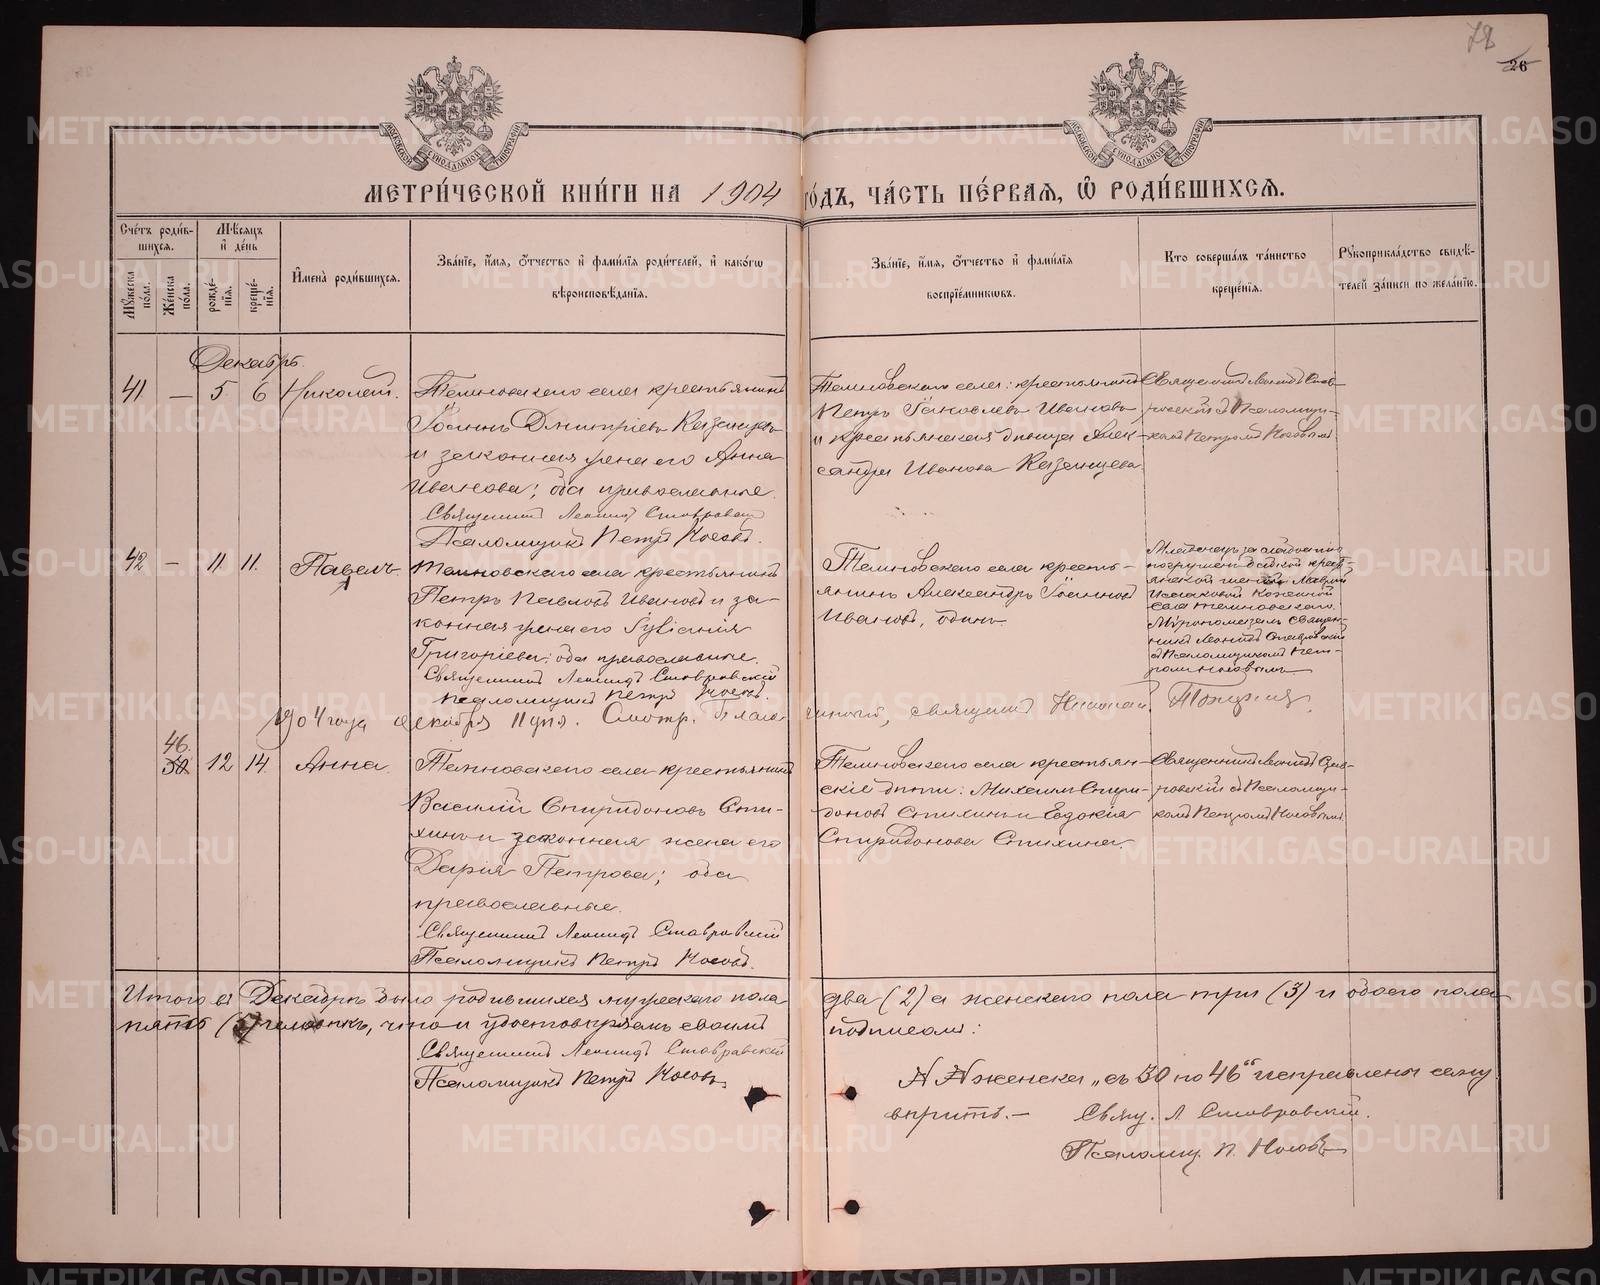 78
26
МЕТРИ́ЧЕСКОЙ КНИ́ГИ НА 1904 ГО́ДЪ, ЧА́СТЬ ПЕ́РВАЯ, Ѽ РОДИ́ВШИХСЯ.
Сче́тъ роди́вшихся.
Мѣ́сяцъ и҆ де́нь
Мꙋ́жеска по́ла.
Же́нска по́ла.
рожде́нїя.
креще́нїя.
И҆мена̀ роди́вшихся.
Зва́нїе, и҆́мя, ѻ҆́тчество и҆ фами́лїя роди́телей, и҆ како́гѡ
вѣроисповѣ́данїя.
Зва́нїе, и҆́мя, ѻ҆́тчество и҆ фами́лїя
воспрїе́мникѡвъ.
Кто соверша́лъ та́инство
креще́нїя.
Рꙋкоприкла́дство свидѣ́-
телей за́писи по жела́нїю.
Декабрь.
41 — 5 6 Николай.
Темновскаго села крестьянинъ
Іоаннъ Димитріевъ Казанцевъ
и законная жена его Анна
Иванова; оба православные.
Священникъ Леонидъ Ставровскій
Псаломщикъ Петръ Носовъ.
Темновскаго села: крестьянинъ
Петръ Іаковлевъ Ивановъ
и крестьянская дѣвица Алек-
сандра Иванова Казанцева
Священникъ Леонидъ Став-
ровскій съ Псаломщи-
комъ Петромъ Носовымъ
42 — 11 11. Павелъ
Темновскаго села крестьянинъ
Петръ Павловъ Ивановъ и за-
конная жена его
Григоріева; оба православные.
Священникъ Леонидъ Ставровскій
Псаломщикъ Петръ Носовъ.
Темновскаго села кресть-
янинъ Александръ Іоанновъ
Ивановъ, одинъ.
Младенецъ за слабостію
погруженъ бабкой крест-
янской женой
села Темновскаго.
Мѵропомазалъ Священ-
никъ Леонидъ Ставровскій
съ Псаломщикомъ Пет-
ромъ Носовымъ
1904 года декабря 11 дня. Смотр. Благочинный, священникъ Николай
46.
50 12 14 Анна
Темновскаго села крестьянинъ
Василій Спиридоновъ Сти-
хинъ и законная жена его
Дарія Петрова; оба
православные.
Священникъ Леонидъ Ставровскій
Псаломщикъ Петръ Носовъ.
Темновскаго села крестьян-
скіе дѣти: Михаилъ Спири-
доновъ Стихинъ и Евдокія
Спиридонова Стихина.
Священникъ Леонидъ Став-
ровскій съ Псаломщи-
комъ Петромъ Носовымъ
Итого въ Декабрѣ было родившихся мужескаго пола два (2) а женскаго пола три (3) и обоего пола
пять (5) человѣкъ, что и удостовѣряемъ своимъ подписомъ:
Священникъ Леонидъ Ставровскій
Псаломщикъ Петръ Носовъ
№ № женска „съ 50 по 46“ исправлены сему
вѣрить.— Свящ. Л Ставровскій.
Псаломщ. П. Носовъ
METRIKI.GASO-URAL.RU